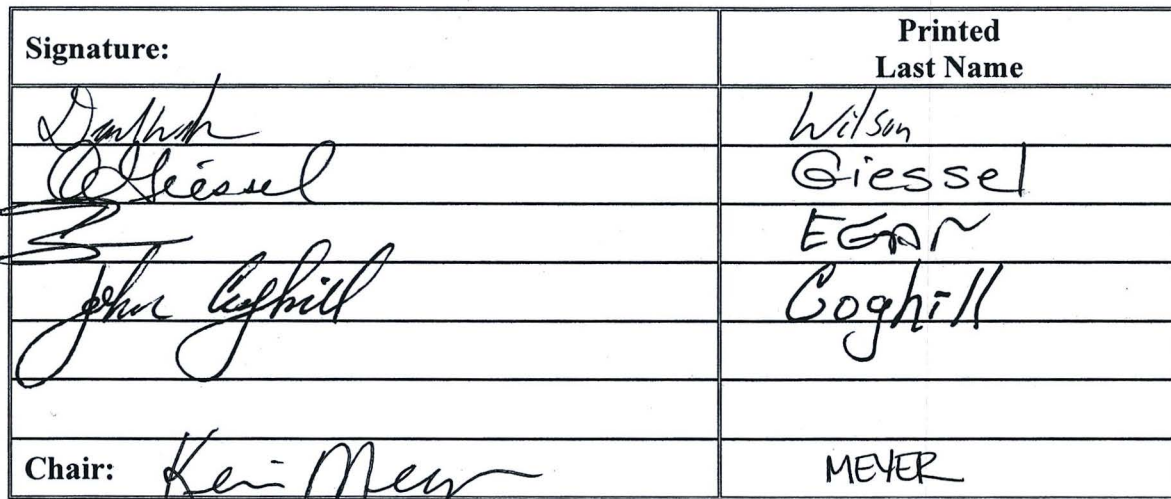 Signature:
Printed
Last Name
Wilson
Giessel Giessel
EGAN
John Coghill Coghill
Chair: Kevin Meyer MEYER